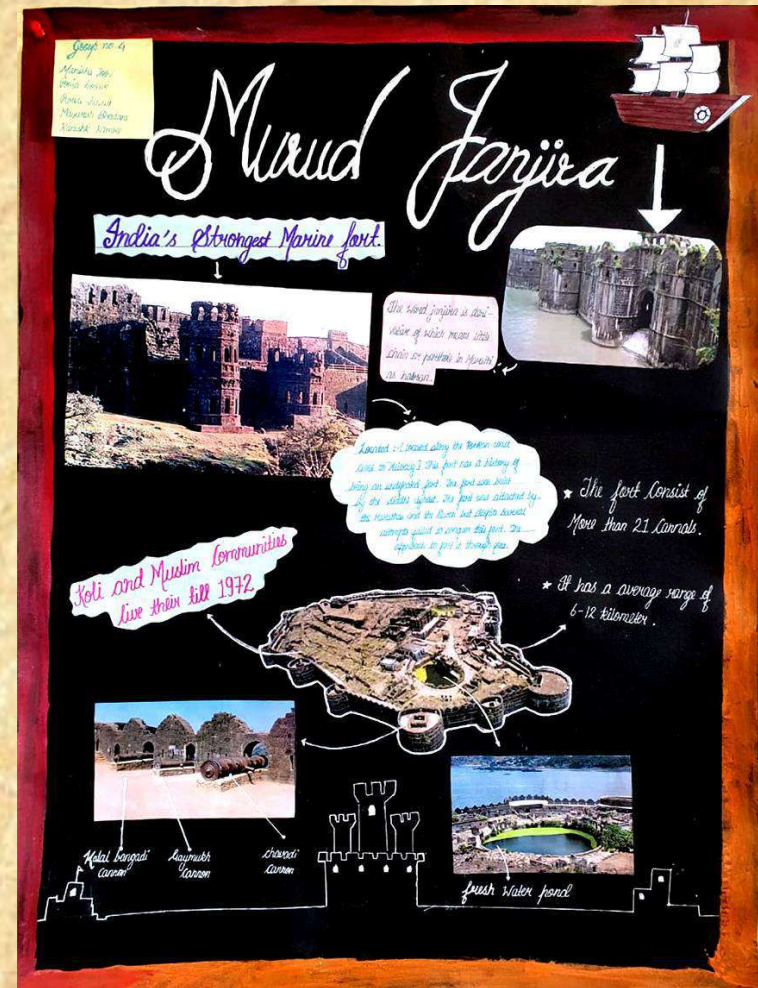 Group no. 4
Murud Janjira
India's Strongest Marine fort.
The word janjira is deri-
vative of which means
chain or
as
Located :- Located along the Konkan coast
This fort has a history of
being an undefeated fort. The fort was built
by the The fort was attacked by
the Marathas and the but despite several
attempts failed to conquer this fort. The
approach to fort is through
★ The fort Consist of
More than 21 Cannals.
★ It has a average range of
6-12 kilometer.
Koli and Muslim Communities
live their till 1972
Kalal bangadi
Cannon
Gaymukh
Cannon
chavadi
Cannon
fresh Water pond